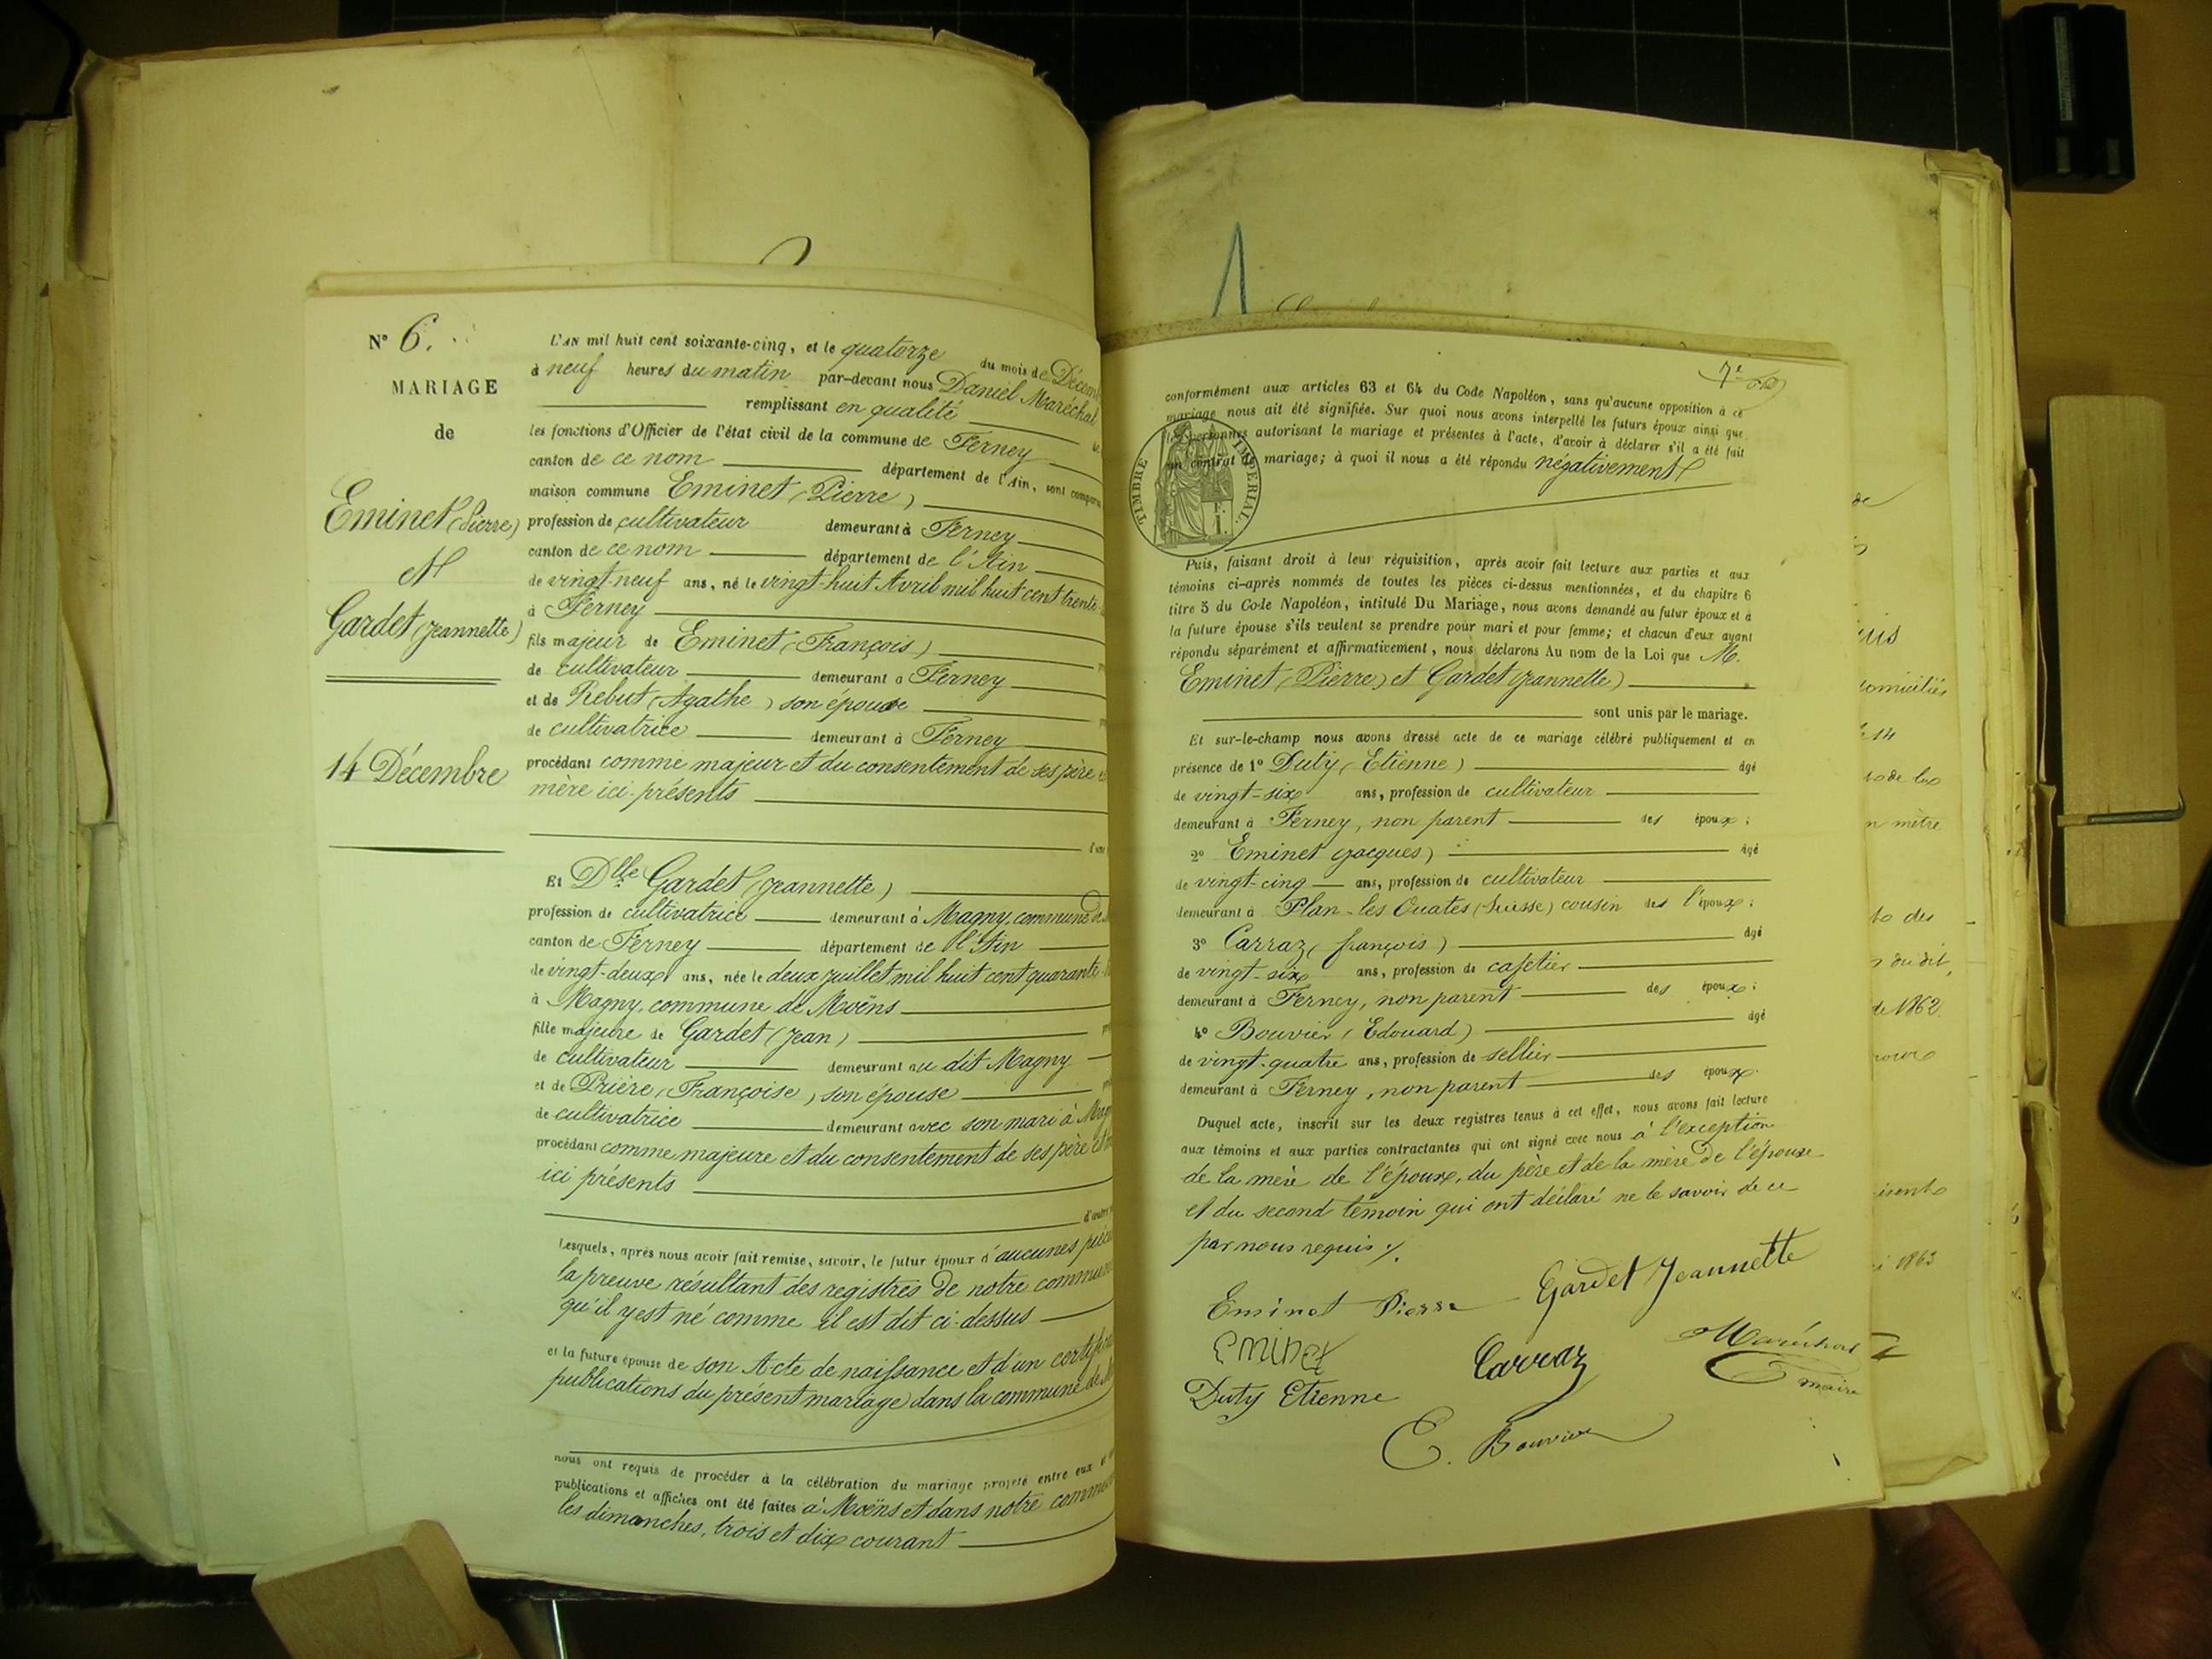 N° 6.
MARIAGE
de
Eminet (Pierre)
et
Gardet (Jeannette)
14 Décembre
L'AN mil huit cent soixante-cinq, et le quatorze du mois de Décem
à neuf heures du matin par-devant nous Daniel Maréchal
remplissant en qualité
les fonctions d'Officier de l'état civil de la commune de Ferney
canton de ce nom département de l'Ain, sont comparu
maison commune Eminet (Pierre)
profession de cultivateur demeurant à Ferney
canton de ce nom département de l'Ain
de vingt-neuf ans, né le vingt-huit Avril mil huit cent trente
à Ferney
fils majeur de Eminet (François)
de cultivateur demeurant à Ferney
et de Rebut (Agathe) son épouse
de cultivatrice demeurant à Ferney
procédant comme majeur et du consentement de ses père et
mère ici présents
d'une
Et Dlle Gardet (Jeannette)
profession de cultivatrice demeurant à Magny, commune de
canton de Ferney département de l'Ain
de vingt-deux ans, née le deux juillet mil huit cent quarante
à Magny, commune de Moëns
fille majeure de Gardet (Jean)
de cultivateur demeurant au dit Magny
et de Prière (Françoise) son épouse
de cultivatrice demeurant avec son mari à Mag
procédant comme majeure et du consentement de ses père et
ici présents
d'autre
Lesquels, après nous avoir fait remise, savoir, le futur époux d'aucunes pièce
la preuve résultant des registres de notre commune
qu'il y est né comme il est dit ci-dessus
et la future épouse de son Acte de naissance et d'un certifi
publications du présent mariage dans la commune de M
nous ont requis de procéder à la célébration du mariage projeté entre eux et
publications et affiches ont été faites à Moëns et dans notre commu
les dimanches, trois et dix courant
1
7e
conformément aux articles 63 et 64 du Code Napoléon, sans qu'aucune opposition à ce
mariage nous ait été signifiée. Sur quoi nous avons interpellé les futurs époux ainsi que
les personnes autorisant le mariage et présentes à l'acte, d'avoir à déclarer s'il a été fait
un contrat de mariage; à quoi il nous a été répondu négativement
TIMBRE IMPERIAL.
Puis, faisant droit à leur réquisition, après avoir fait lecture aux parties et aux
témoins ci-après nommés de toutes les pièces ci-dessus mentionnées, et du chapitre 6
titre 5 du Code Napoléon, intitulé Du Mariage, nous avons demandé au futur époux et à
la future épouse s'ils veulent se prendre pour mari et pour femme; et chacun d'eux ayant
répondu séparément et affirmativement, nous déclarons Au nom de la Loi que M.
Eminet (Pierre) et Gardet (Jeannette)
sont unis par le mariage.
Et sur-le-champ nous avons dressé acte de ce mariage célébré publiquement et en
présence de 1° Duty (Etienne) âgé
de vingt-six ans, profession de cultivateur
demeurant à Ferney, non parent des époux;
2° Eminet (Jacques) âgé
de vingt-cinq ans, profession de cultivateur
demeurant à Plan-les-Ouates (Suisse) cousin des l'époux;
3° Carraz (françois) âgé
de vingt-six ans, profession de cafetier
demeurant à Ferney, non parent des époux;
4° Bouvier (Edouard) âgé
de vingt-quatre ans, profession de sellier
demeurant à Ferney, non parent des époux.
Duquel acte, inscrit sur les deux registres tenus à cet effet, nous avons fait lecture
aux témoins et aux parties contractantes qui ont signé avec nous à l'exception
de la mère de l'époux, du père et de la mère de l'épouse
et du second temoin qui ont déclaré ne le savoir de ce
par nous requis ./.
Eminet Pierre Gardet Jeannette
Eminet Carraz Maréchal
maire
Duty Etienne
E. Bouvier
de
omiciliés
n mètre
des
du dit,
de 1862
1863